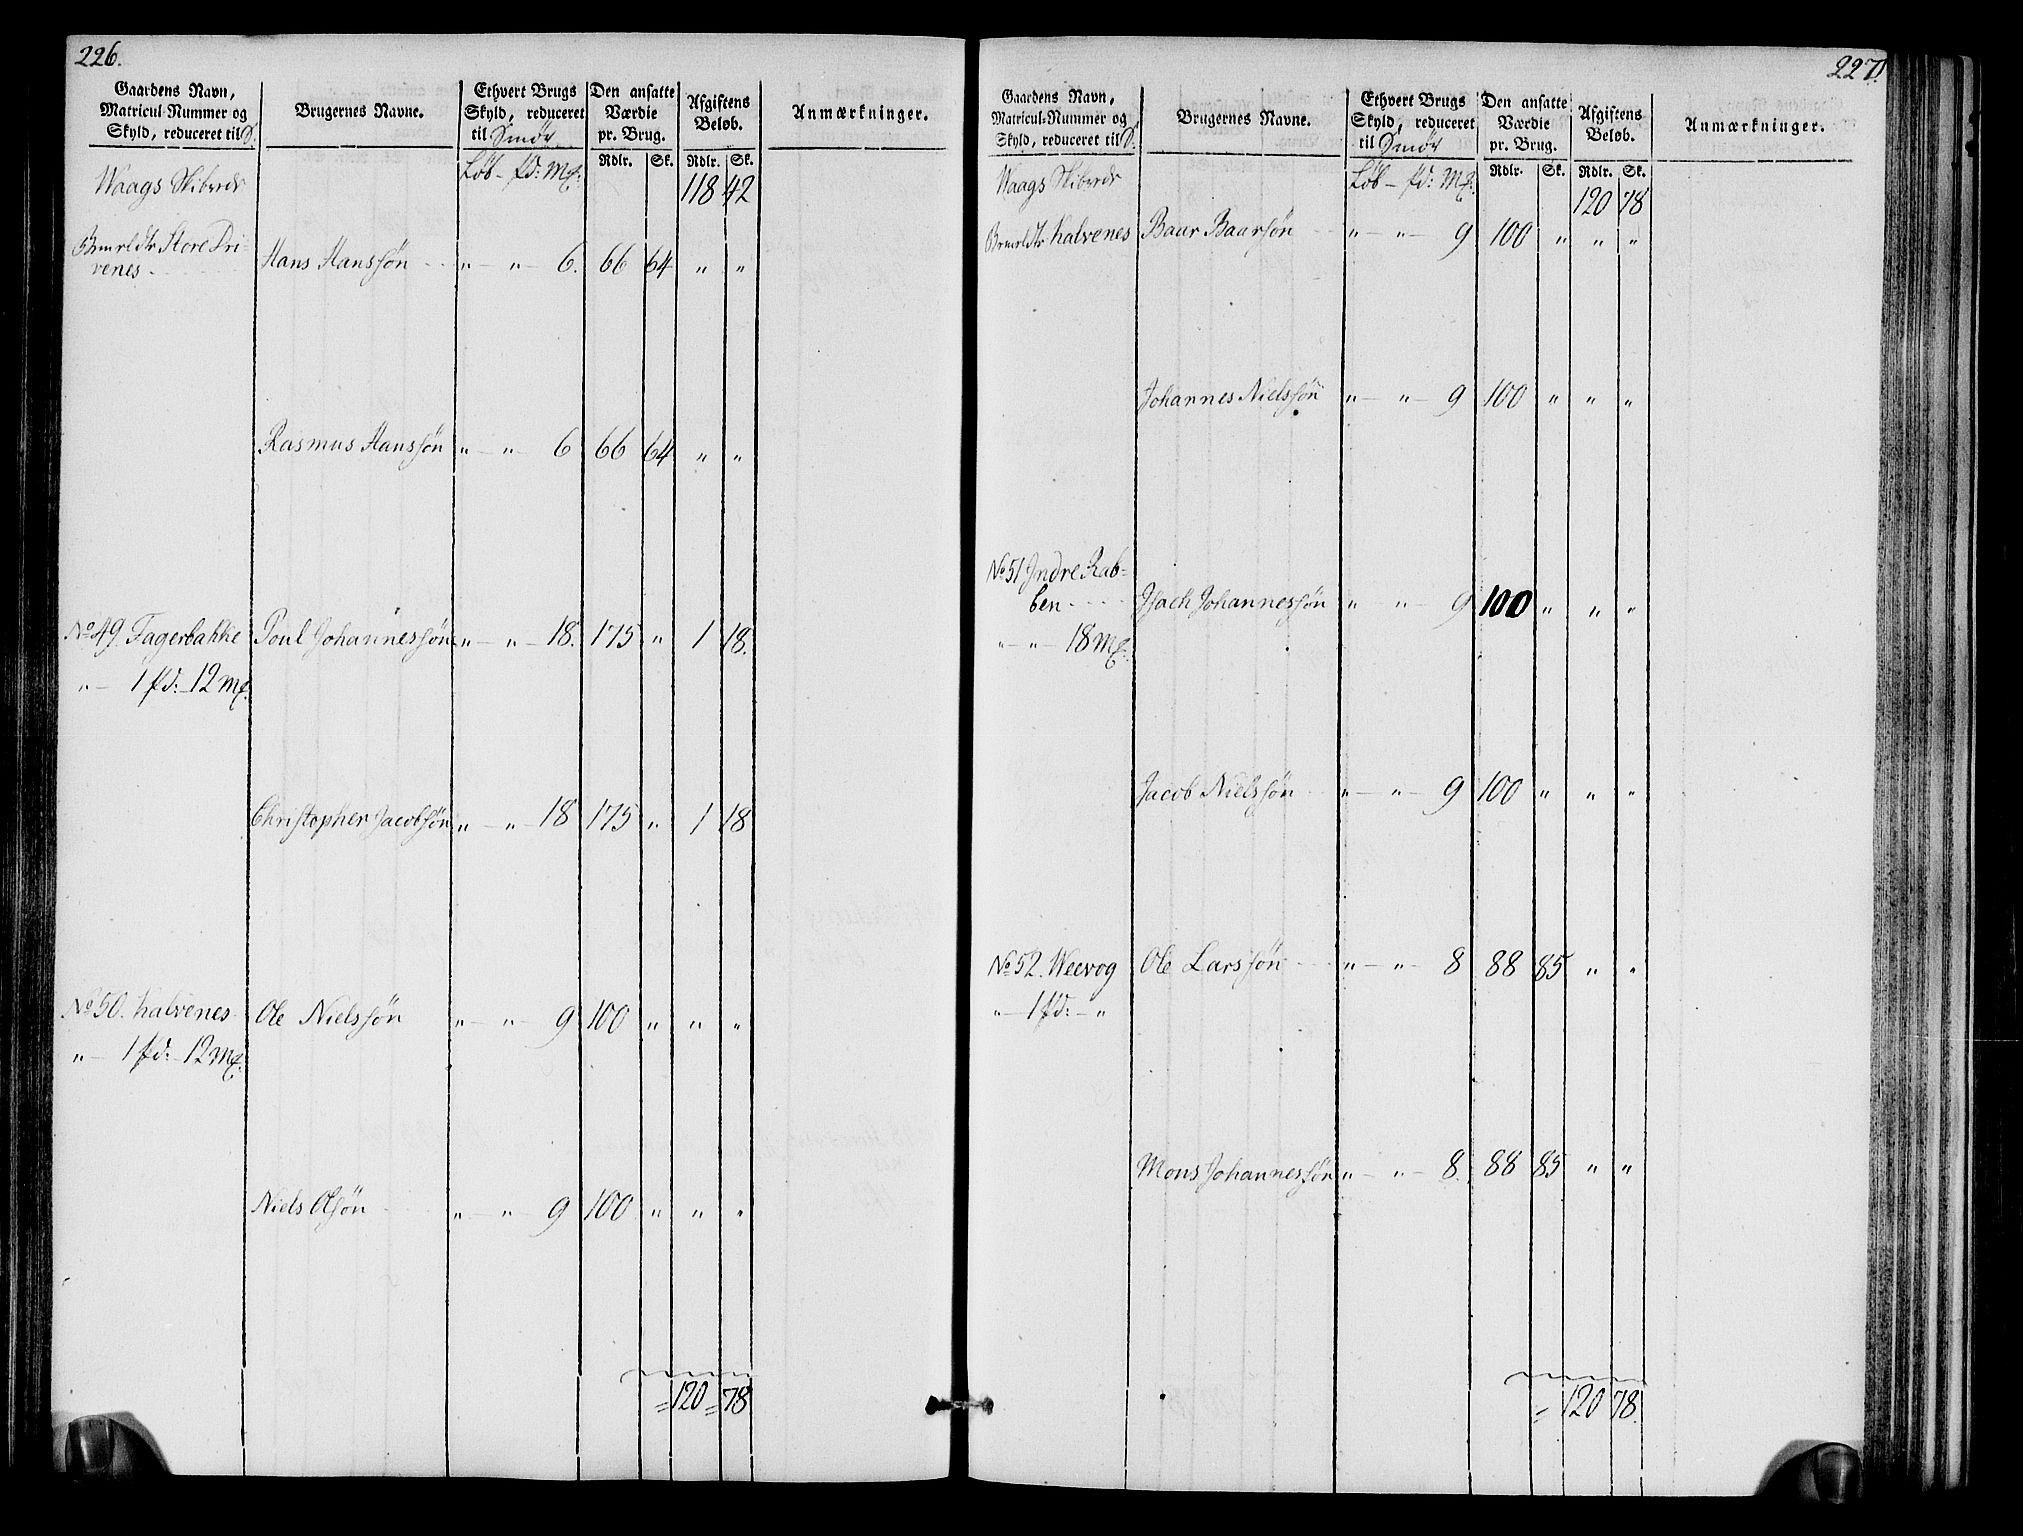 226.
Gaardens Navn, Matricul-Nummer og Skyld, reduceret til
Brugernes Navne.
Ethvert Brugs Skyld, reduceret til Smør
Den ansatte Værdie pr. Brug.
Afgiftens Beløb.
Anmærkninger.
Løb – pd: Mk:
Rdlr. Sk. Rdlr. Sk.
Waags Skibrede 118 42
Store Dri-
venes Hans Hanssøn " – " – 6. 66 64 " "
Rasmus Hanssøn " – " – 6 66 64 " "
No 49. Fagerbakke Poul Johannessøn " – " – 18. 175 " 1 18.
" – 1 pd: – 12 Mk.
Christopher Jacobsøn " – " – 18 175 " 1 18
No 50. Halvenes Ole Nielssøn " – " – 9 100 " " "
" – 1 pd: – 12 Mk.
Niels Olsøn " – " – 9 100 " " "
= 120 = 78
227.
Gaardens Navn, Matricul-Nummer og Skyld, reduceret til
Brugernes Navne.
Ethvert Brugs Skyld, reduceret til Smør
Den ansatte Værdie pr. Brug.
Afgiftens Beløb.
Anmærkninger.
Løb – pd: Mk:
Rdlr. Sk. Rdlr. Sk.
Waags Skibrede 120 78
Halvenes Baar Baarsøn " – " – 9 100 " " "
Johannes Nielssøn " – " – 9 100 " " "
No 51 Indre Rab-
ben Isach Johannessøn " – " – 9 100 " " "
" – " – 18 Mk.
Jacob Nielssøn " – " – 9 100 " " "
No 52. Weevog Ole Larssøn " – " – 8 88 85 " "
" – 1 pd: – "
Mons Johannessøn " – " – 8. 88 85 " "
= 120 78.